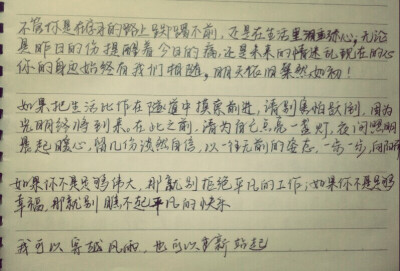 不管你是在存在的路上踌躇不前，还是在生活里独自伤心，无论
是昨日的伤提醒着今日的痛，还是未来的情迷乱现在的心
你的身边始终有我们相随，明天依旧粲然如初！
如果把生活比作在隧道中摸索前进，请别惧怕跌倒，因为
光明终将到来，在此之前，请为自己点亮一盏灯，夜间照明
晨起暖心，留几份淡然自信，以一往无前的姿态，一步一步，向阳
如果你不是足够伟大，那就别拒绝平凡的工作；如果你不是足够
幸福，那就别瞧不起平凡的快乐
我可以穿越风雨，也可以重新站起